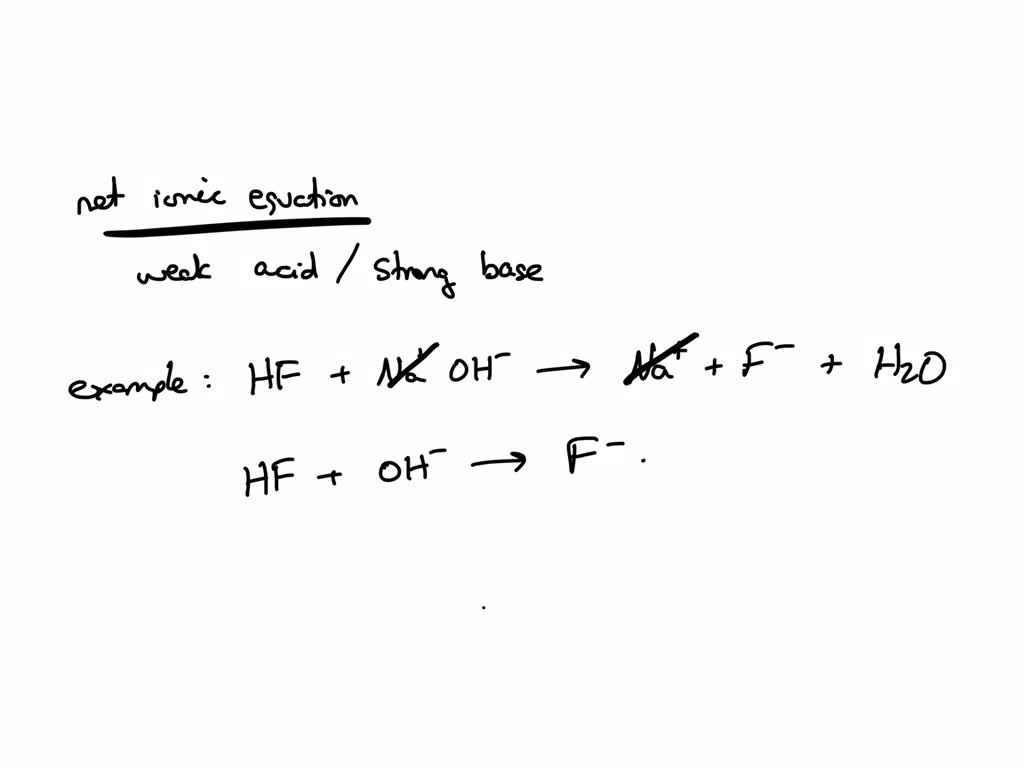 net ionic equation
weak acid / strong base
example: HF + Na⁺ OH⁻ → Na⁺ + F⁻ + H₂O
HF + OH⁻ → F⁻.